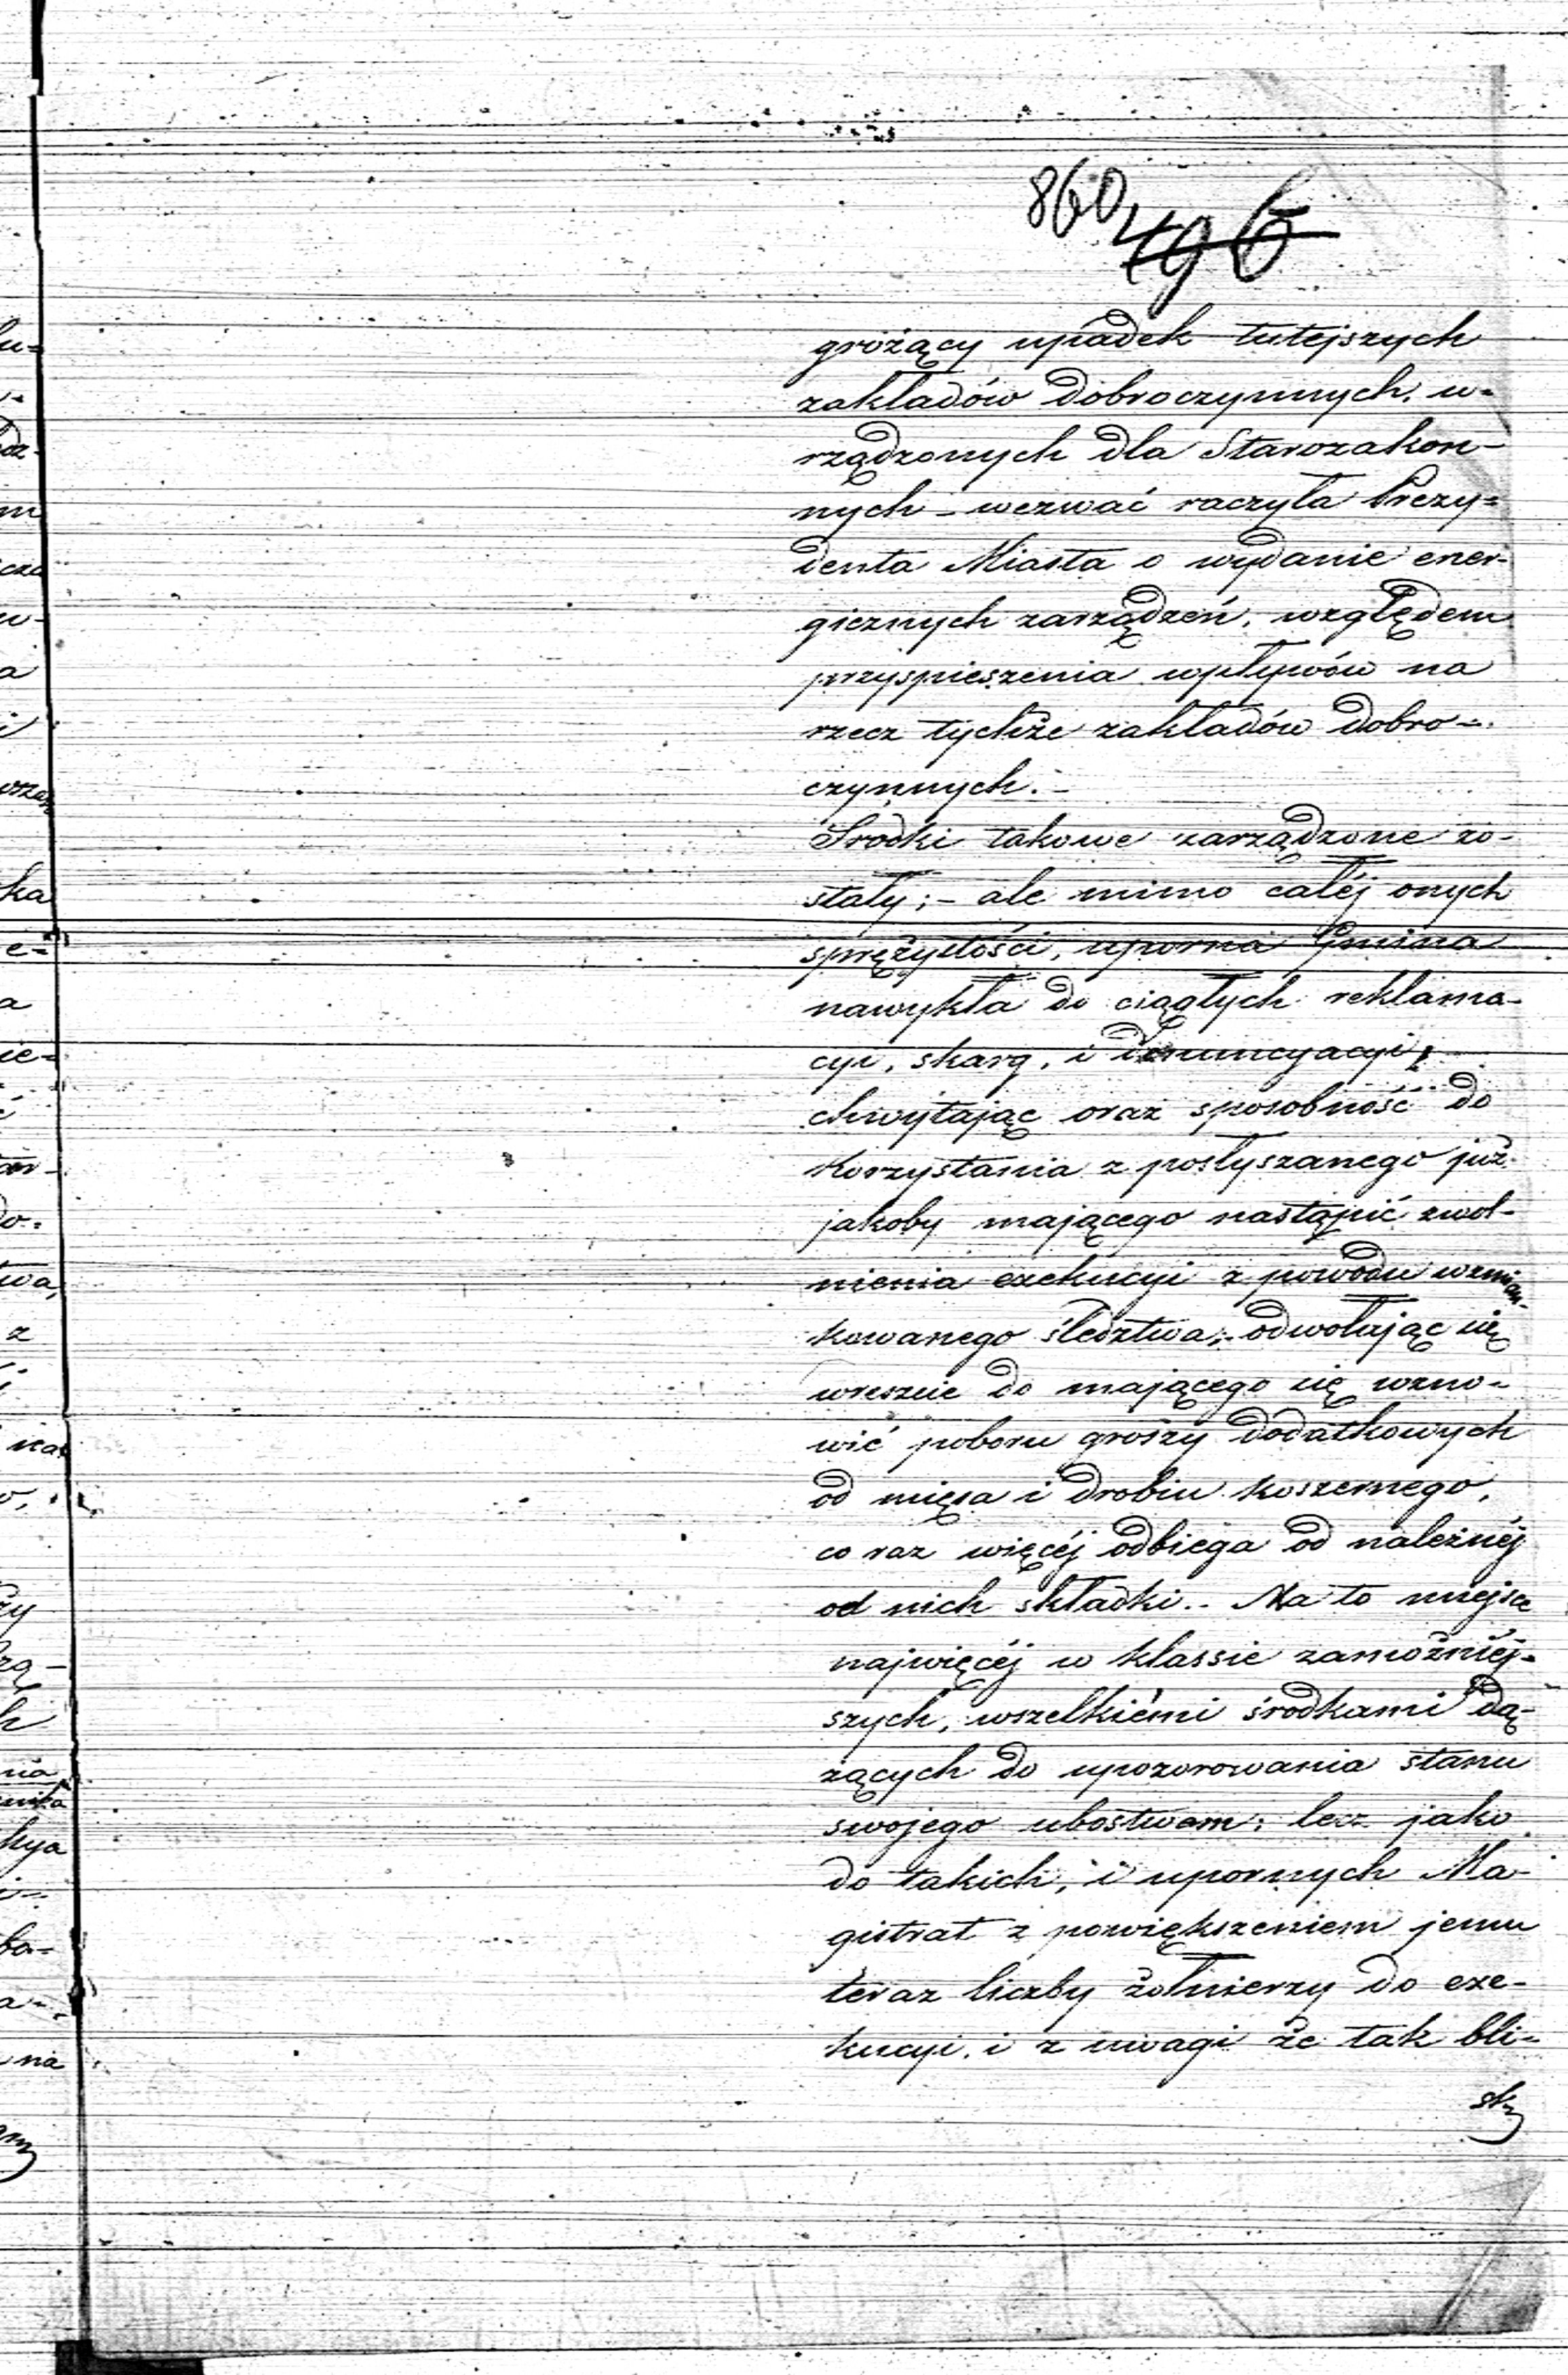 860
496
grożący upadek tutejszych
zakładów dobroczynnych, u-
rządzonych dla Starozakon-
nych – wezwać raczyła Prezy-
denta Miasta o wydanie ener-
gicznych zarządzeń, względem
przyspieszenia wpływów na
rzecz tychże zakładów dobro-
czynnych.–
Środki takowe zarządzone zo-
stały; – ale mimo całéj onych
sprężystości, uporna Gmina
nawykła do ciągłych reklama-
cyi, skarg, i denuncyacyi,
chwytając oraz sposobność do
korzystania z posłyszanego już
jakoby mającego nastąpić zwol-
nienia exekucyi z powodu wzmian-
kowanego śledztwa; odwołając się
wreszcie do mającego się wzno-
wić poboru groszy dodatkowych
od mięsa i drobiu koszernego,
co raz więcéj odbiega od należnéj
od nich składki.. Ma to miejsce
najwięcéj w klassie zamożniéj-
szych, wszelkiemi środkami dą-
żących do upozorowania stanu
swojego ubóstwem; lecz jako
do takich, i upornych Ma-
gistrat z powiększeniem jemu
teraz liczby żołnierzy do exe-
kucyi, i z uwagi że tak bli-
sky